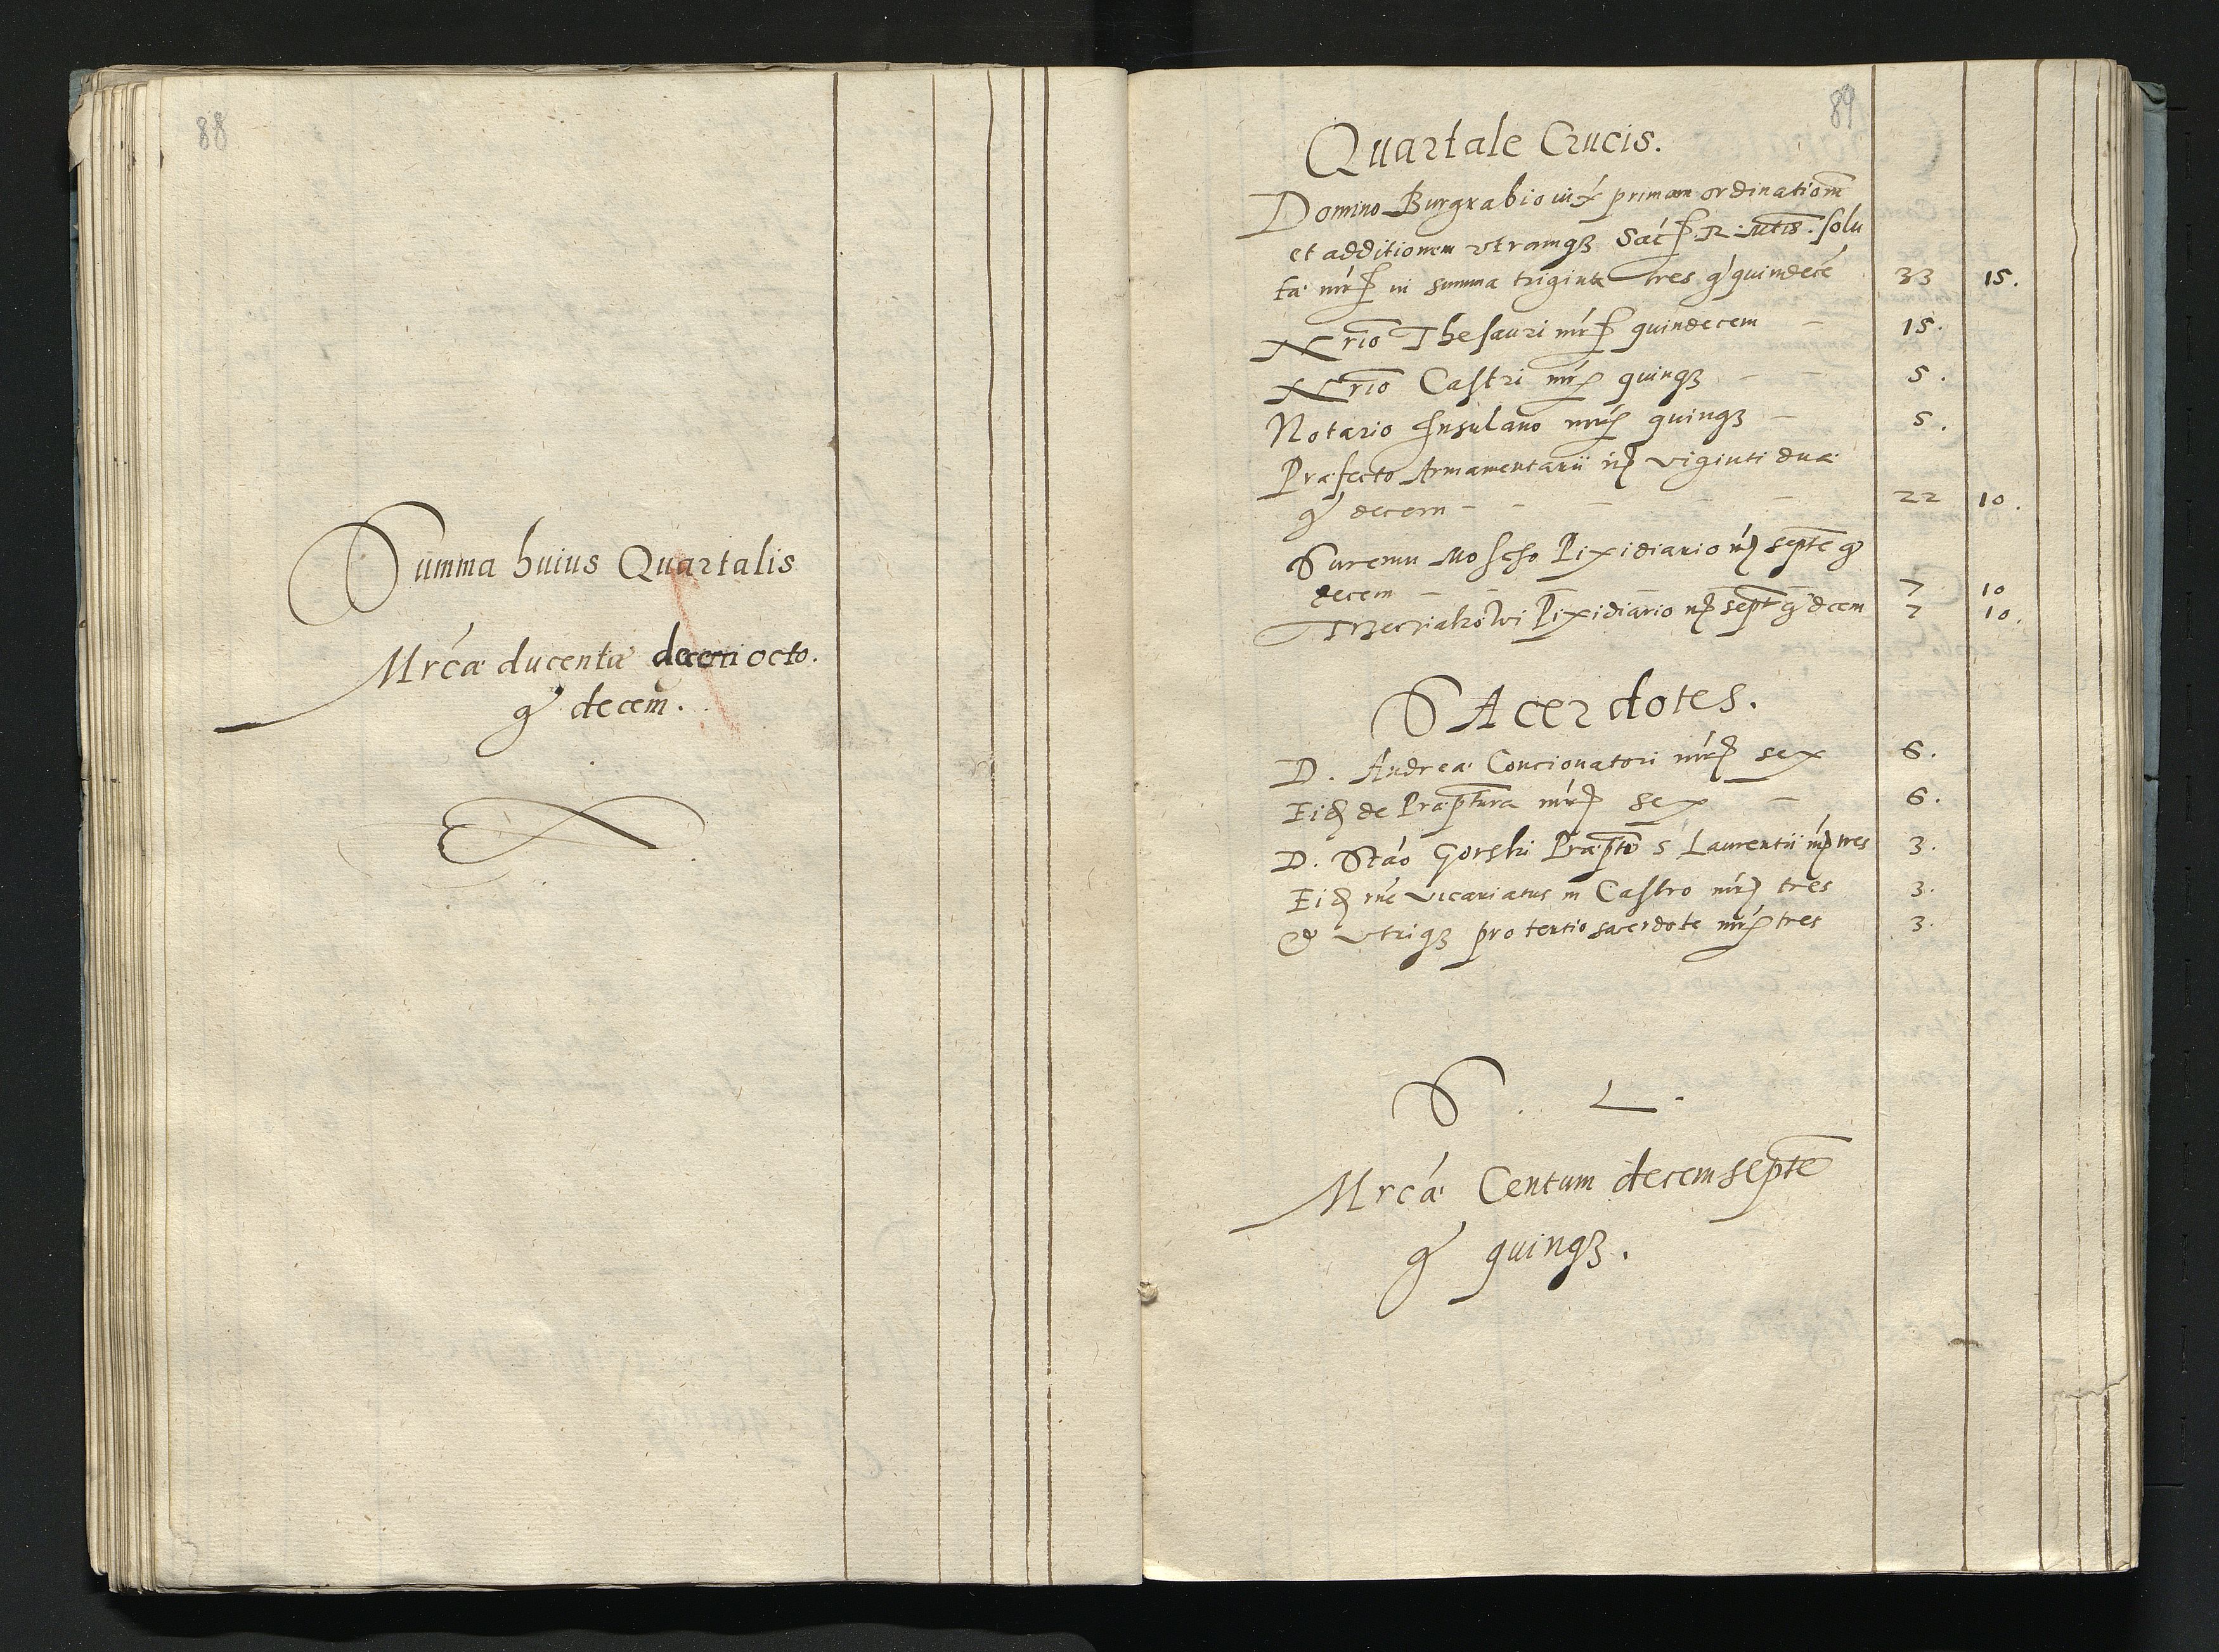 88
Summa huius Quartalis
Mrcá ducenta decem octo.
gr decem.
89
Quartale Crucis.
Domino Burgrabio iux primam ordinationem
et additionem utramqȝ Sac R Mtis. solu
ta mrc in summa triginta tres gr quindecé 33 15.
rio Thesauri mrc quindecem – 15.
rio Castri mrc quinqȝ – – 5.
Notario Insulano mrc quinqȝ – 5.
Præfecto Armamentarii mr viginti duæ
gr decem – – – – 22 10.
Suremu Moscho Pixidiario mr septe gr
decem – – – – – 7 10
Trzeciakowi Pixidiario mr sept gr decem 7 10.
SAcerdotes.
D. Andreæ Concionatori mrc sex 6.
Eid de Præptura mrc sex – 6.
D. Stáo Gorski Præpto S Laurentii mr tres 3.
Eid rne vicariatus in Castro mrc tres 3.
Et Utriqȝ pro tertio sacerdote mrc tres 3.
S. L.
Mrcá Centum decem septe
gr quinqȝ.